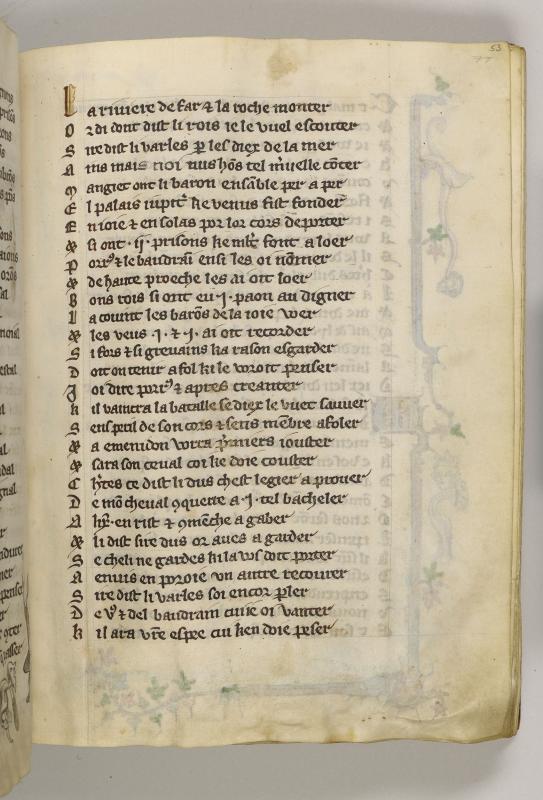 53
L a riuiere de far ⁊ la roche monter
O r di dont dist li rois ie le vuel escouter
S ire dist li varles ꝑ les diex de la mer
A ins mais noi nus hōs tel mīuelle cōter
M angier ont li baron ensāble per a per
E l palais iupitʳ ke venus fist fonder
E n ioie ⁊ en solas por lor cors deporter
⁊ si ont .ij. prisons ke mlʳ font a loer
P orrꝰ ⁊ le baudraī ensi les oi nōmer
⁊ de haute proeche les ai ont loer
B ons rois si ont eu .j. paon au digner
L a couint les barōs de la ioie voer
⁊ les veus .j. ⁊ .j. ai oit recorder
S i fors ⁊ si greuains ka rason esgarder
D oit on tenir a fol ki le voroit penser
J oi dire porrꝰ ⁊ apres creanter
k il vaintra la bataille se diex le vuet sauuer
S ens peril de son cors ⁊ sens mēbre afoler
⁊ a emenidon vorra p̄miers iouster
⁊ sara son ceual coi ke doie couster
C h̄tes ce dist li dus chest legier a prouer
D e mō cheual ꝯquerre a .j. tel bacheler
A lix̄. en rist ⁊ ꝯmēche a gaber
⁊ li dist sire dus or aues a garder
S e cheli ne gardes ki la vs̄ doit porter
A enuis en poroie vn autre recourer
S ire dist li varles soi encor ꝑler
D e vꝰ ⁊ del baudrain cuie oi vanter
k il ara vr̄e espee cui ken doie peser